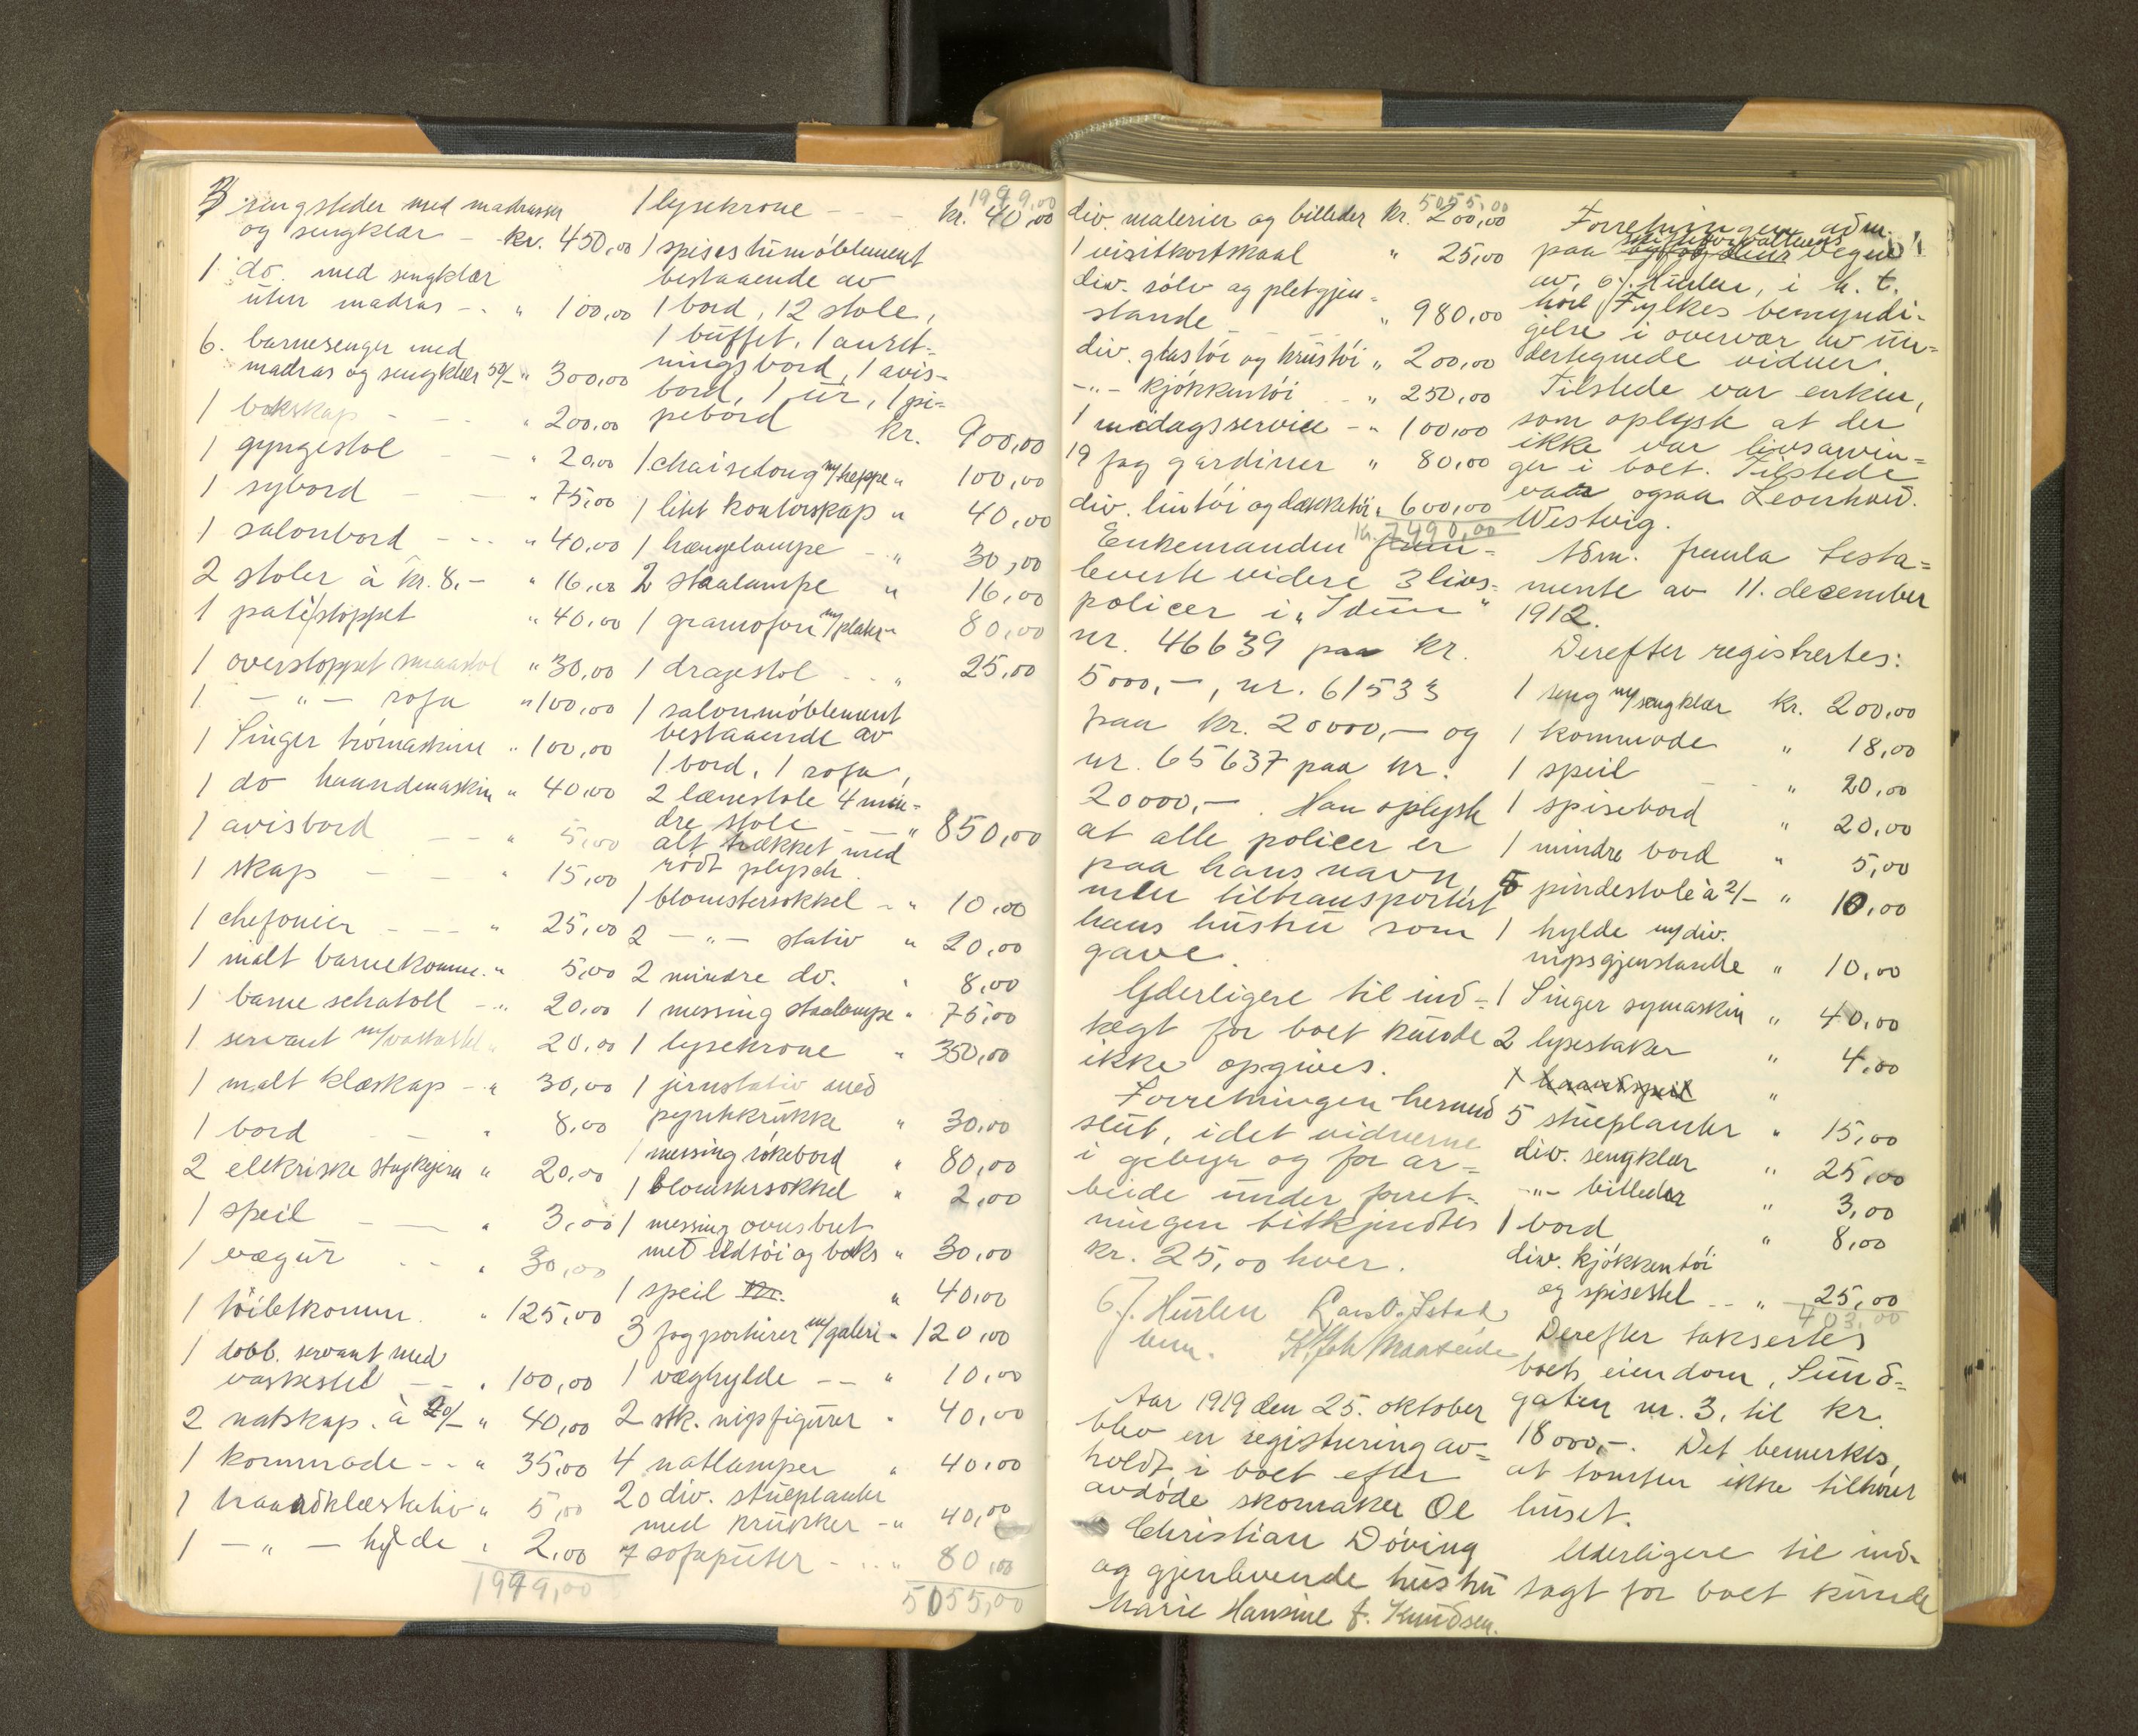 3 sengsteder med madrasser
og sengklær - kr. 450,00
1 do. med sengklær
uten madras - " 100,00
6. barnesenger med
madras og sengklær 50/- " 300,00
1 bokskap - - " 200,00
1 gyngestol - - " 20,00
1 sybord - - " 75,00
1 salonbord - - - " 40,00
2 stoler à kr. 8.- " 16,00
1 patè/stoppet " 40,00
1 overstoppet smaastol " 30,00
1 - " - sofa " 100,00
1 Singer trömaskine " 100,00
1 do haandmaskin " 40,00
1 avisbord - - " 5,00
1 skap - - " 15,00
1 chefonier - - - " 25,00
1 malt barnekomme. " 5,00
1 barne schatoll - " 20,00
1 servant m/vaskestel " 20,00
1 malt klæskap - " 30,00
1 bord - - " 8,00
2 elektriske strykejern " 20,00
1 speil - - " 3,00
1 vægur - - " 30,00
1 töiletkomm. " 125,00
1 dobb. servant med
vaskestel - - " 100,00
2 natskap. à 20/- " 40,00
1 kommode - - " 35,00
1 haandklæstativ " 5,00
1 - " - hylde " 2,00
1999,00
1999,00
1 lysekrone - - - kr. 40,00
1 spisestuemöblement
bestaaende av
1 bord, 12 stole,
1 buffet, 1 anret-
ningsbord, 1 avis-
bord, 1 ur, 1 pi-
pebord kr. 900,00
1 chaiselong m/teppe " 100,00
1 litet kontorskap " 40,00
1 hængelampe - " 30,00
2 staalampe " 16,00
1 gramofon m/plater " 80,00
1 dragestol - - " 25,00
1 salonmöblement
bestaaende av
1 bord, 1 sofa,
2 lænestole 4 min-
dre stole - - " 850,00
alt trækket med
rödt plysch.
1 blomstersokkel - " 10,00
2 - " - stativ " 20,00
2 mindre do. " 8,00
1 messing staalampe " 75,00
1 lysekrone " 350,00
1 jernstativ med
pyntekrukke " 30,00
1 messing rökebord " 80,00
1 blomstersokkel " 2,00
1 messing ovnsbret
med ildtöi og boks " 30,00
1 speil kr. " 40,00
3 fag portierer m/galeri " 120,00
1 væghylde - - " 10,00
2 stk. nipsfigurer " 40,00
4 natlamper " 40,00
20 div. stueplanter
med krukker - " 40,00
7 sofaputer - - " 80,00
5055,00
5055,00
div. malerier og billeder kr. 200,00
1 visitkortskaal " 25,00
div. sölv og pletgjen-
stande - - - " 980,00
div. glastöi og krustöi " 200,00
- " - kjökkentöi - " 250,00
1 midagsservice - " 100,00
19 fag gardiner " 80,00
div. lintöi og dækketöi " 600,00
Kr. 7490,00
Enkemanden frem-
leverte videre 3 livs-
policer i "Idun"
nr. 46639 paa kr.
5000,-, nr. 61533
paa kr. 20000,- og
nr. 65637 paa kr.
20000,-. Han oplyste
at alle policer er
paa hans navn
men tiltransportert
hans hustru som
gave.
Yderligere til ind-
tægt for boet kunde
ikke opgives.
Forretningen hermed
slut, idet vidnerne
i gebyr og for ar-
beide under forret-
ningen tilkjendtes
kr. 25,00 hver.
O.J. Hurlen Lars O. Ystad
bem. K. Joh Maaseide
Aar 1919 den 25. oktober
blev en registrering av-
holdt i boet efter
avdöde skomaker Ole
Christian Döving
og gjenlevende hustru
Marie Hansine f. Knudsen.
61
Forretningen adm.
paa skifteforvalterens vegne
av O.J. Hurlen, i h. t.
hosl. Fylkes bemyndi-
gelse i overvær av un-
dertegnede vidner.
Tilstede var enken,
som oplyste at der
ikke var livsarvin-
ger i boet. Tilstede
var ogsaa Leonhard
Westvig.
Adm. fremla testa-
mente av 11. december
1912.
Derefter registrertes:
1 seng m/sengklær kr. 200,00
1 kommode " 18,00
1 speil - " 20,00
1 spisebord " 20,00
1 mindre bord " 5,00
5 pindestole à 2/- " 10,00
1 hylde m/div.
nipsgjenstande " 10,00
1 Singer symaskin " 40,00
2 lysestaker " 4,00
1 haandspeil "
5 stueplanter " 15,00
div. sengklær " 25,00
- " - billeder " 3,00
1 bord " 8,00
div. kjökkentöi
og spisestel - - " 25,00
403,00
Derefter taksertes
boets eiendom, Sund-
gaten nr. 3, til kr.
18000,-. Det bemerkes,
at tomten ikke tilhörer
huset.
Yderligere til ind-
tægt for boet kunde